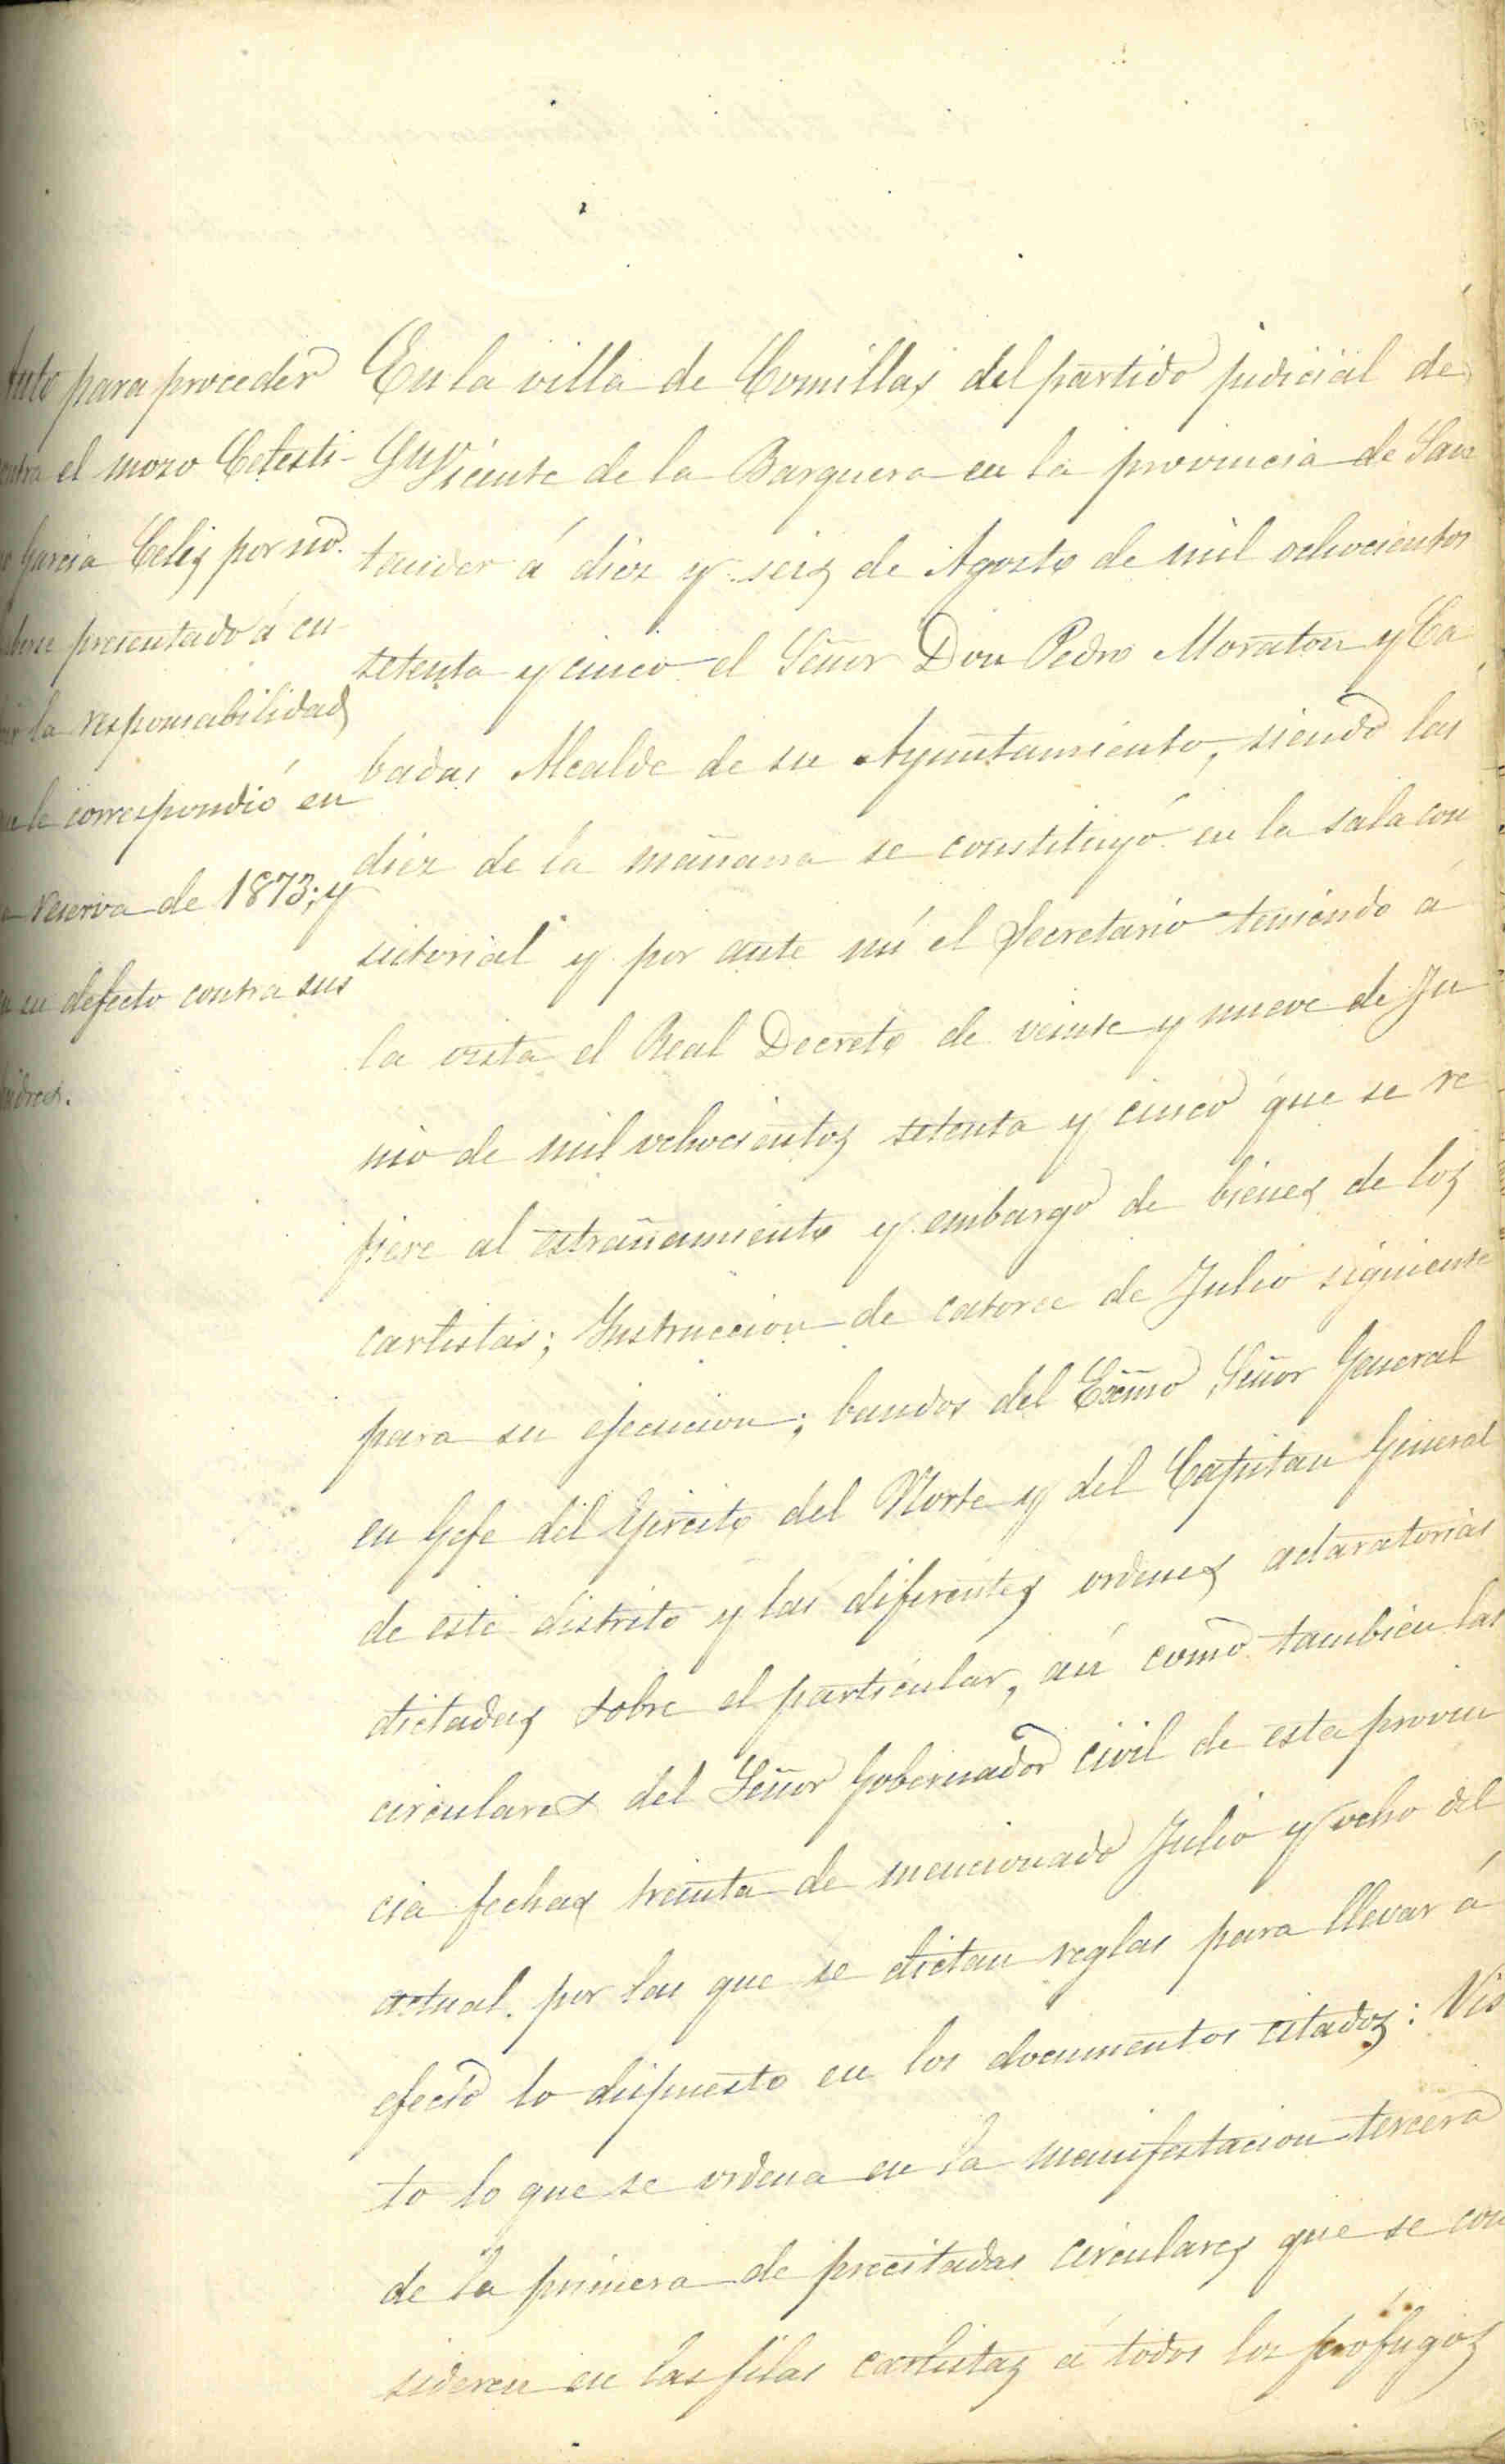 Auto para proceder
contra el mozo Celesti-
no Garcia Celis por no
haberse presentado á cu-
brir la responsabilidad
que le correspondió en
la reserva de 1873; y
en su defecto contra sus
padres.
En la villa de Comillas del partido judicial de
Sn Vicente de la Barquera en la provincia de San
tander á diez y seis de Agosto de mil ochocientos
setenta y cinco el Señor Don Pedro Moraton y Ca
badas Alcalde de su Ayuntamiento, siendo las
diez de la mañana se constituyó en la sala con
sistorial y por ante mí el Secretario teniendo á
la vista el Real Decreto de veinte y nueve de Ju
nio de mil ochocientos setenta y cinco que se re
fiere al estrañamiento y embargo de bienes de los
carlistas; Instruccion de catorce de Julio siguiente
para su ejecucion; bandos del Excmo Señor General
en Gefe del Ejercito del Norte y del Capitan General
de este distrito y las diferentes ordenes aclaratorias
dictadas sobre el particular, así como tambien las
circulares del Señor Gobernador civil de esta provin
cia fechas treinta de mencionado Julio y ocho del
actual por las que se dictan reglas para llevar á
efecto lo dispuesto en los documentos citados: Vis
to lo que se ordena en la manifestacion tercera
de la primera de precitadas circulares que se con
sideren en las filas carlistas á todos los prófugos